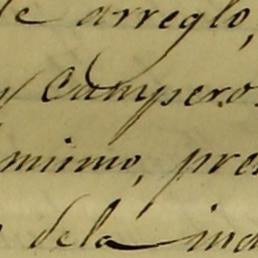 de arreglo,
y Campero
mismo, pre
dela ind